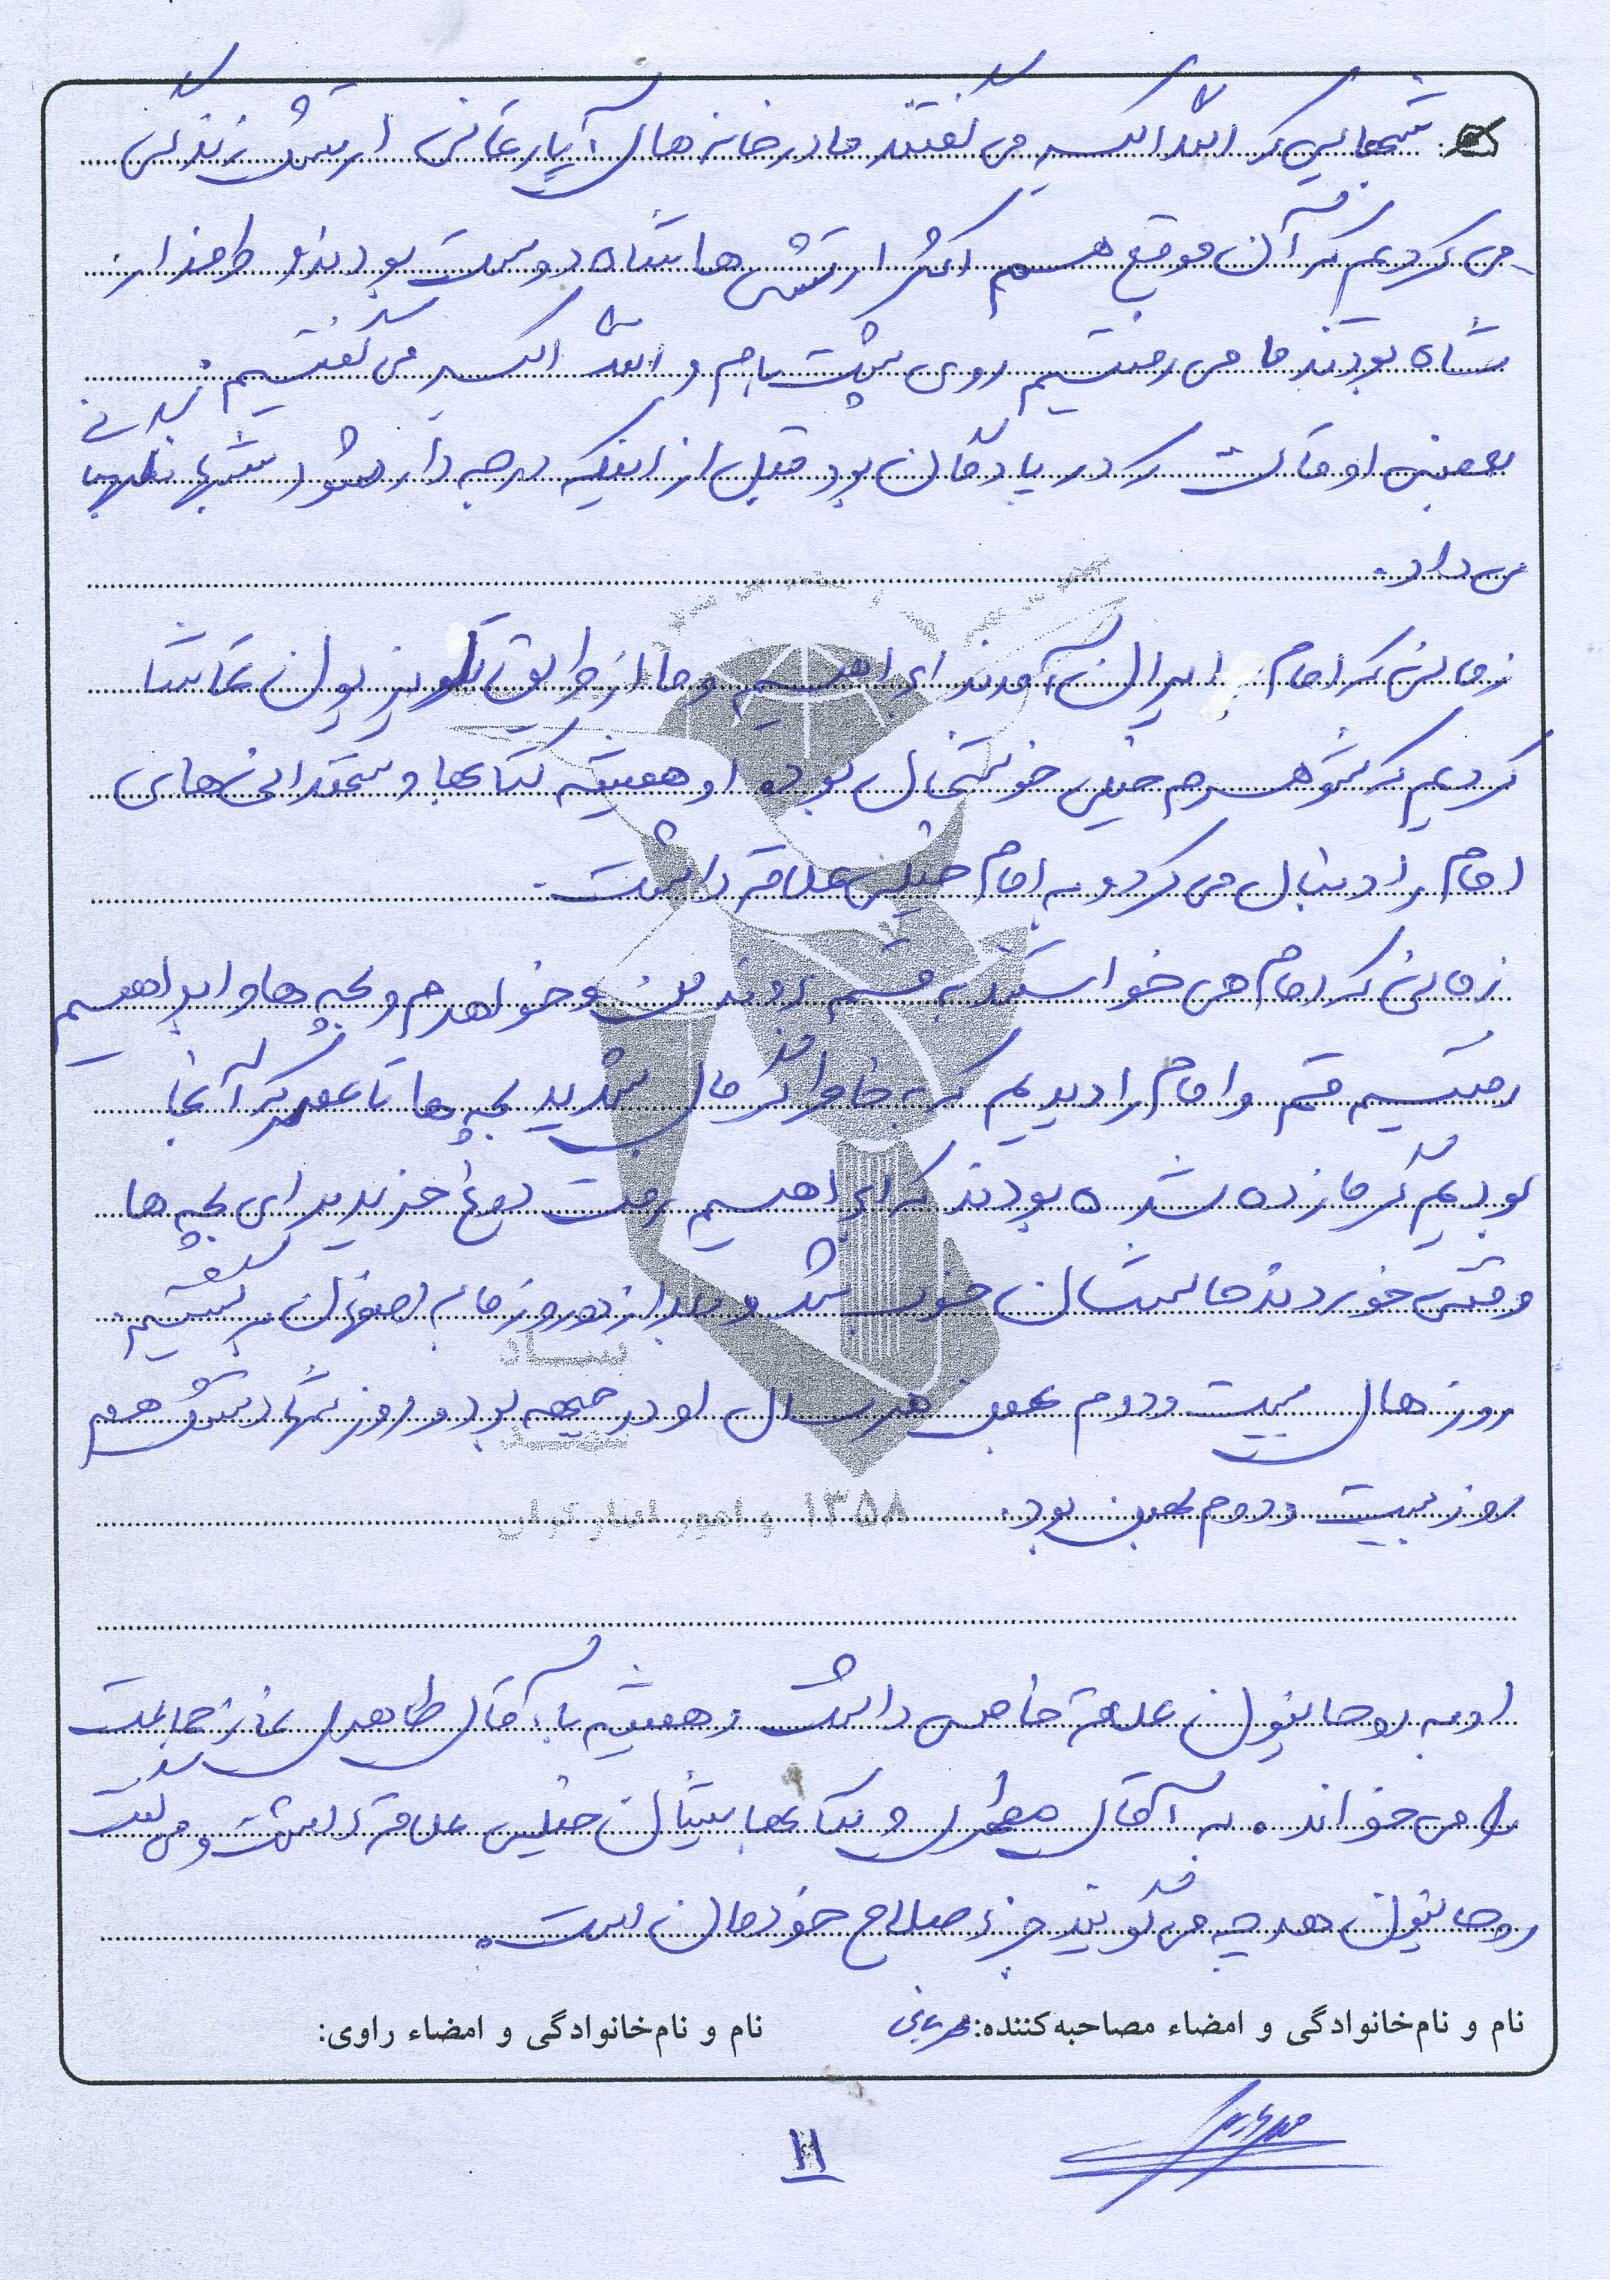 شبهایی که الله اکبر می گفتند ما در خانه های آپارتمانی ارتش زندگی
می کردیم که آن موقع هم اکثر ارتشی ها شاه دوست بودند و طرفدار
شاه بودند ما می رفتیم روی پشت بام و الله اکبر می گفتیم.
بعضی اوقات که در پادگان بود قبل از اینکه درجه دار بشود شبها نگهبانی
می داد.
زمانی که امام ایران آمدند ابراهیم و ما از طریق تلویزیون تماشا
کردیم که شوهرم خیلی خوشحال بود او همیشه کتابها و سخنرانی های
امام را دنبال می کرد و به امام خیلی علاقه داشت.
زمانی که امام می خواستند به قم بروند من و خواهرم و بچه ها و ابراهیم
رفتیم قم و امام را دیدیم که به خاطر گرمای شدید بچه ها تا عصر که آنجا
بودیم گرمازده شده بودند که ابراهیم رفت دوغ خرید برای بچه ها
وقتی خوردند حالشان خوب شد و بعد از دو روز ما به اصفهان برگشتیم.
روزهای بیست و دوم بهمن هر سال او در جبهه بود و روز شهادتش هم
روز بیست و دوم بهمن بود.
او به روحانیون علاقه خاصی داشت و همیشه با آقای طاهری نماز جماعت
را می خواند. به آقای مطهری و کتابهایشان خیلی علاقه داشت و می گفت
روحانیون هر چه می گویند جزء صلاح خودمان نیست.
نام و نام‌خانوادگی و امضاء مصاحبه‌کننده: نام و نام‌خانوادگی و امضاء راوی:
۱۱
ستاد
۱۳۵۸ و امور ایثارگران